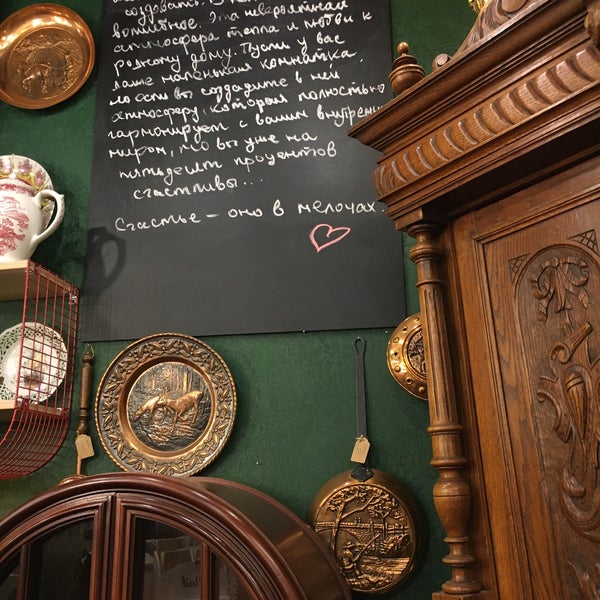 создавать.
волшебное. Эта невероятная
атмосфера тепла и любви к
родному дому. Пусть у вас
даже маленькая комнатка,
но если вы создадите в ней
атмосферу, которая полностью
гармонирует с вашим внутренним
миром, то вы уже на
пятьдесят процентов
счастливы...
Счастье – оно в мелочах.